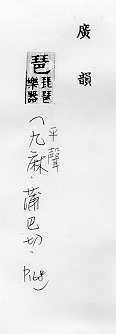 廣韻
琶 琵琶樂器
(平聲
九麻．蒲巴切．P168)